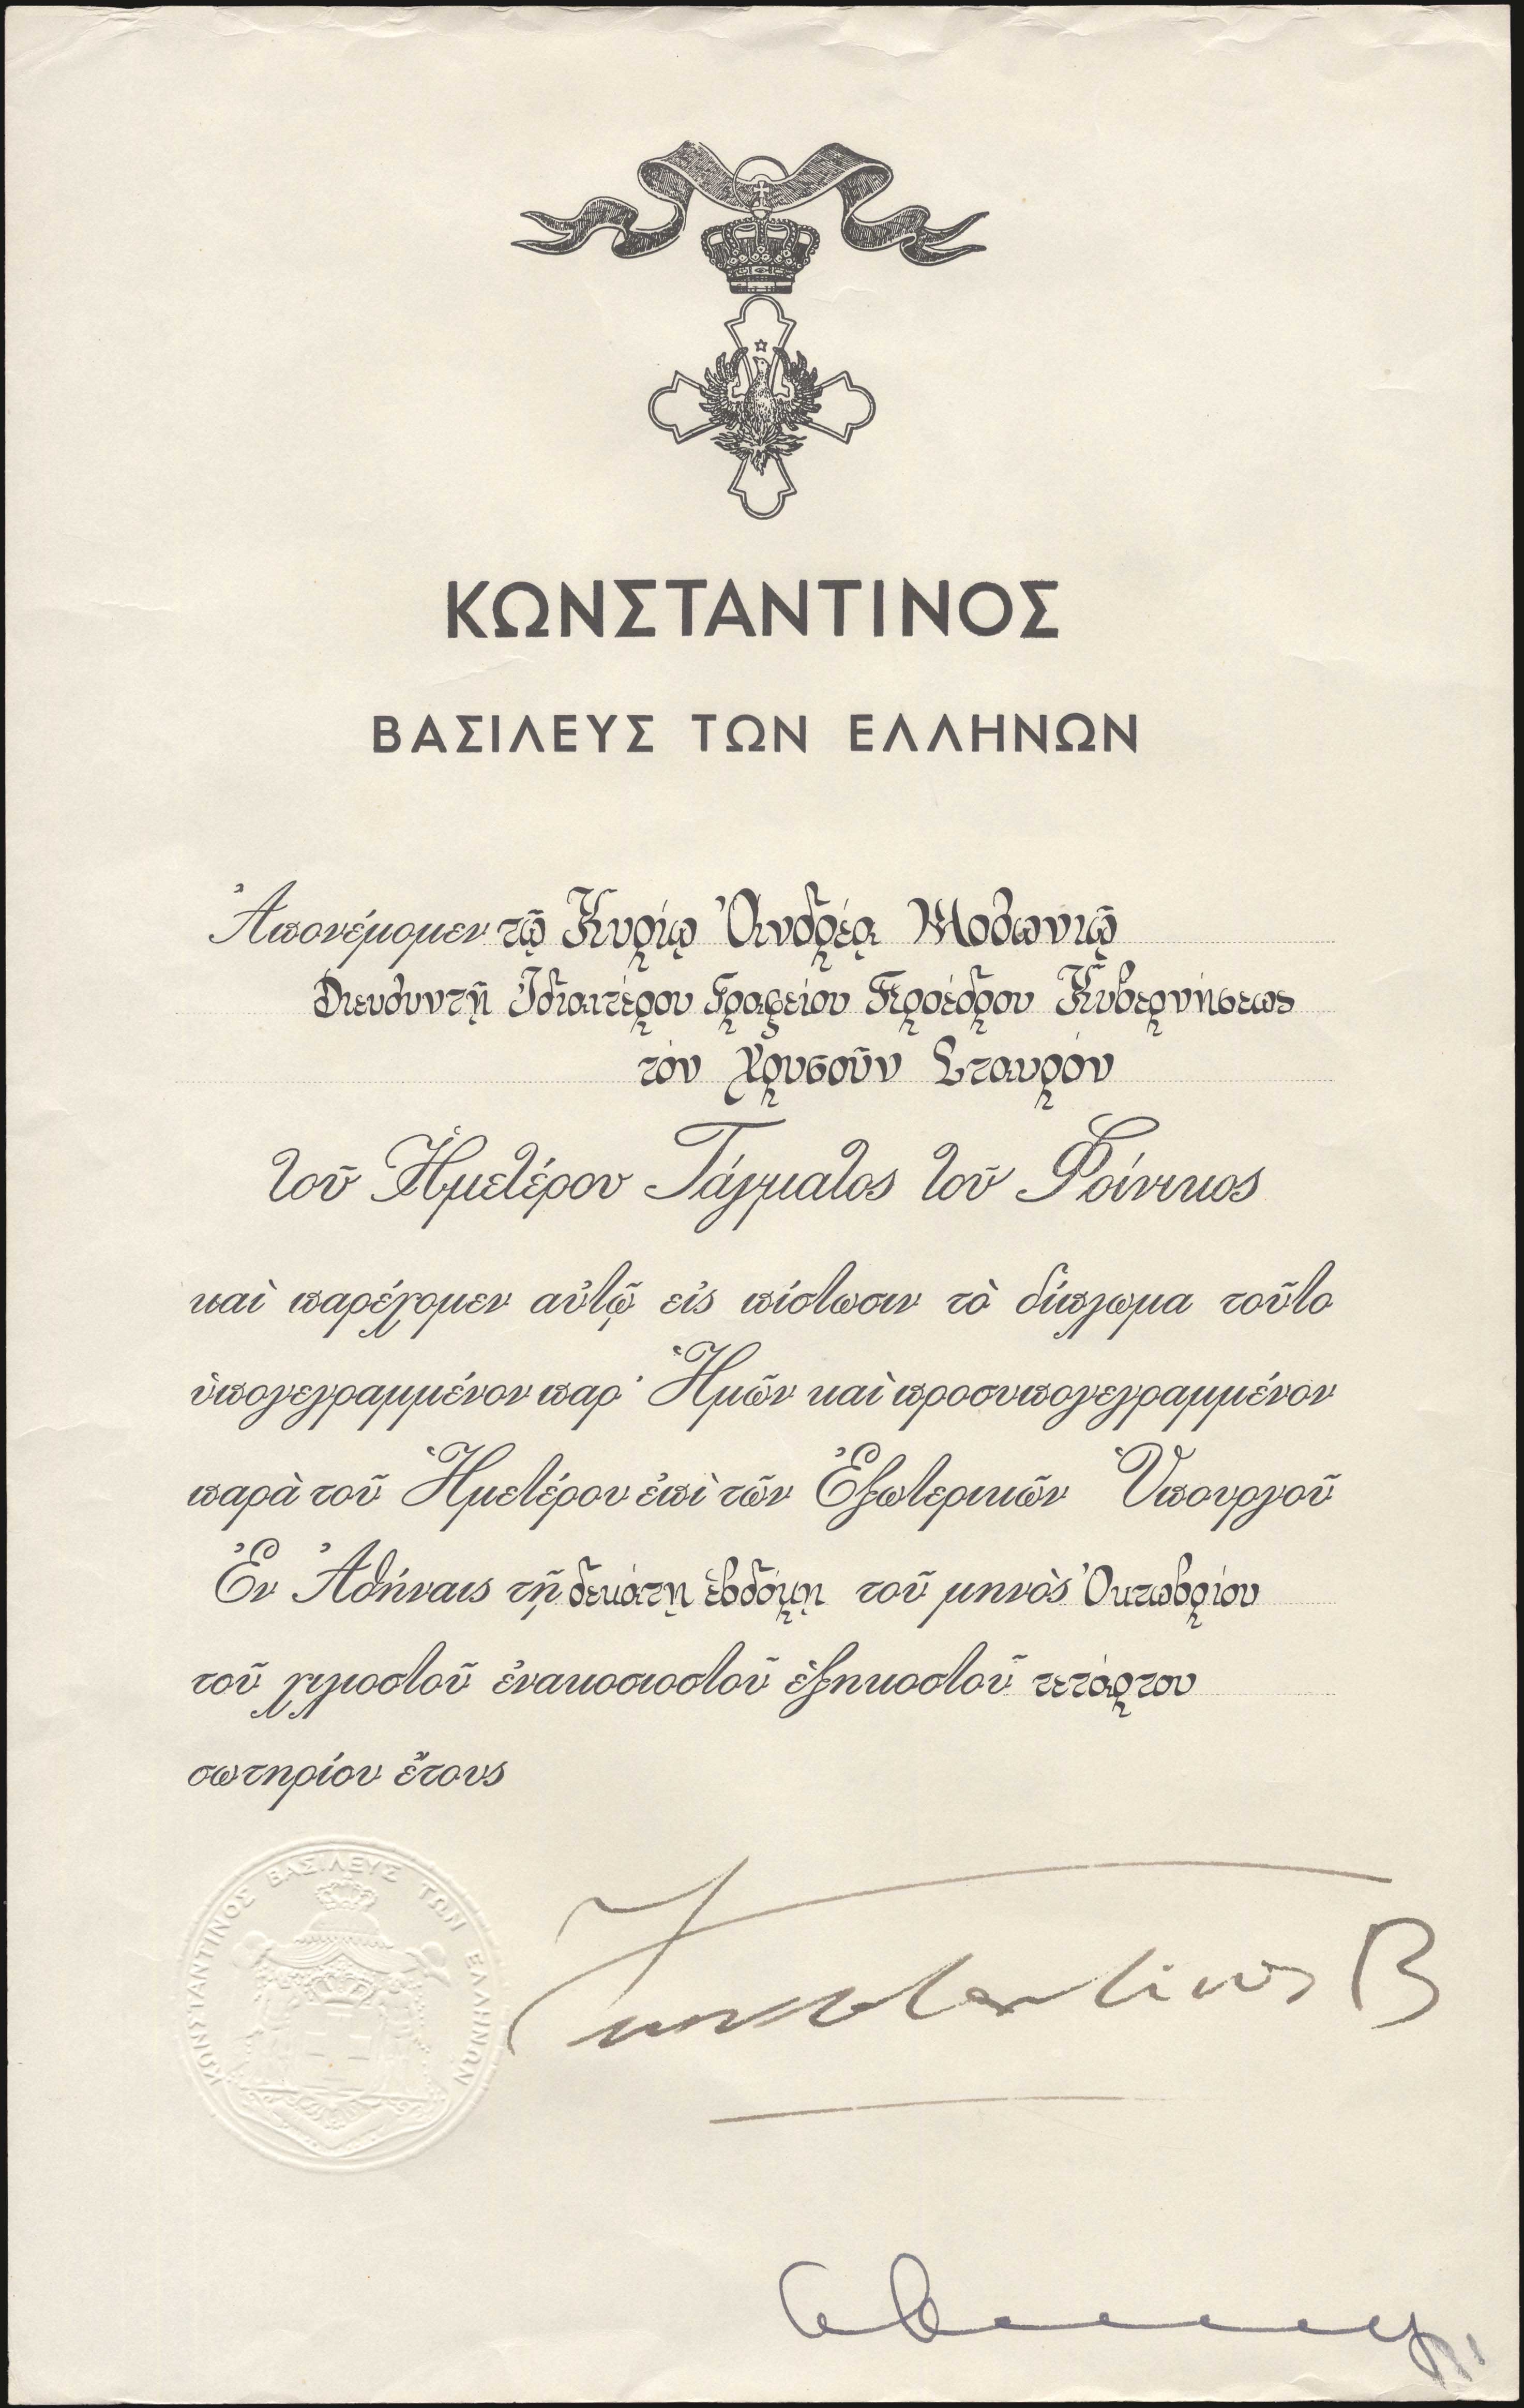 ΚΩΝΣΤΑΝΤΙΝΟΣ
ΒΑΣΙΛΕΥΣ ΤΩΝ ΕΛΛΗΝΩΝ
Ἀπονέμομεν τῷ Κυρίῳ Ἀνδρέᾳ Μοθωνιῷ
Διευθυντῇ Ἰδιαιτέρου Γραφείου Προέδρου Κυβερνήσεως
τόν Χρυσοῦν Σταυρόν
τοῦ Ἡμετέρου Τάγματος τοῦ Φοίνικος
καὶ παρέχομεν αὐτῷ εἰς πίστωσιν τὸ δίπλωμα τοῦτο
ὑπογεγραμμένον παρ' Ἡμῶν καὶ προσυπογεγραμμένον
παρὰ τοῦ Ἡμετέρου ἐπὶ τῶν Ἐξωτερικῶν Ὑπουργοῦ
Ἐν Ἀθήναις τῇ δεκάτῃ ἑβδόμῃ τοῦ μηνὸς Ὀκτωβρίου
τοῦ χιλιοστοῦ ἐνακοσιοστοῦ ἑξηκοστοῦ τετάρτου
σωτηρίου ἔτους
ΚΩΝΣΤΑΝΤΙΝΟΣ ΒΑΣΙΛΕΥΣ ΤΩΝ ΕΛΛΗΝΩΝ
Κωνσταντίνος Β